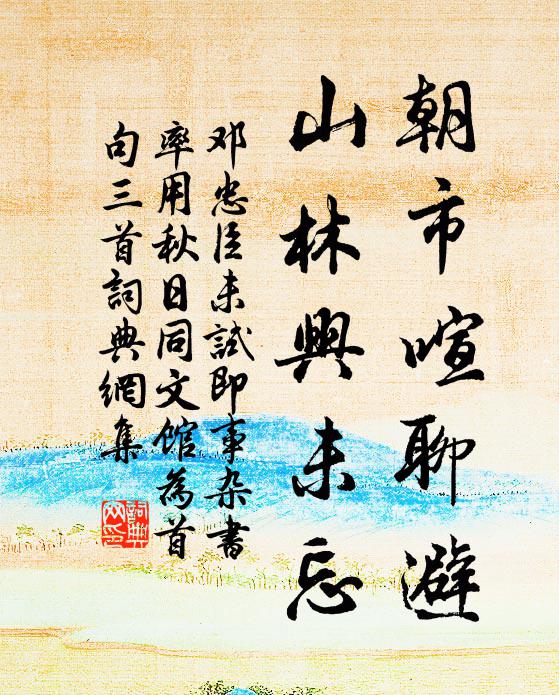 朝市喧聊避
山林興未忘
邓忠臣未試即事杂書
率用秋日同文馆為首
句三首詞典網集
詞典
网印